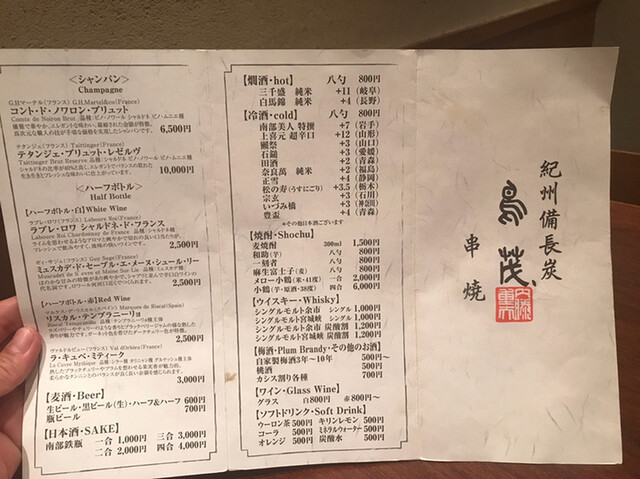 ＜シャンパン＞
Champagne
G.Hマーテル(フランス) G.H.Martel&co(France)
コント・ド・ノワロン・ブリュット
Comte de Noiron Brut 品種：ピノ・ノワール シャルドネ ピノ・ムニエ種
6,500円
テタンジェ(フランス) Taittinger(France)
テタンジェ・ブリュット・レゼルヴ
Taittinger Brut Reserve 品種：シャルドネ ピノ・ノワール ピノ・ムニエ種
10,000円
＜ハーフボトル＞
Half Bottle
【ハーフボトル・白】White Wine
ラブレ・ロワ(フランス) Laboure Roi(France)
ラブレ・ロワ シャルドネ・ド・フランス
Laboure Roi Chardonnay de France 品種：シャルドネ種
2,500円
ギィ・サジェ(フランス) Guy Saget(France)
ミュスカデ・ド・セーブル・エ・メーヌ・シュール・リー
2,500円
【ハーフボトル・赤】Red Wine
リスカル・テンプラニーリョ
2,500円
ヴァルドルビュー(フランス) Val d'Orbieu(France)
ラ・キュベ・ミティーク
3,000円
【麦酒・Beer】
生ビール・黒ビール(生)・ハーフ&ハーフ 600円
瓶ビール 700円
【日本酒・SAKE】
南部鉄瓶 一合 1,000円 三合 3,000円
二合 2,000円 四合 4,000円
【燗酒・hot】 八勺 800円
三千盛 純米 +11 (岐阜)
白馬錦 純米 +4 (長野)
【冷酒・cold】 八勺 800円
南部美人 特撰 +7 (岩手)
上喜元 超辛口 +12 (山形)
獺祭 +3 (山口)
石鎚 +3 (愛媛)
田酒 +2 (青森)
奈良萬 純米 +2 (福島)
正雪 +4 (静岡)
松の寿(うすにごり) +3.5 (栃木)
宗玄 +3 (石川)
いづみ橋 +3 (神奈川)
豊盃 +4 (青森)
＊その他日本酒ございます
【焼酎・Shochu】
麦焼酎 300ml 1,500円
和助(芋) 八勺 800円
一刻者 八勺 800円
麻生富士子(麦) 八勺 800円
メロー小鶴(米・41度) 一合 2,000円
小鶴(芋・原酒・38度) 四合 6,000円
【ウイスキー・Whisky】
シングルモルト余市 シングル 1,000円
シングルモルト宮城峡 シングル 1,000円
シングルモルト余市 炭酸割 1,200円
シングルモルト宮城峡 炭酸割 1,200円
【梅酒・Plum Brandy・その他のお酒】
自家製梅酒3年～10年 500円～
桃酒 500円
カシス割り各種 700円
【ワイン・Glass Wine】
グラス 白800円 赤800円～
【ソフトドリンク・Soft Drink】
ウーロン茶 500円 キリンレモン 500円
コーラ 500円 ミネラルウォーター 500円
オレンジ 500円 炭酸水 500円
紀州備長炭
鳥茂
串焼